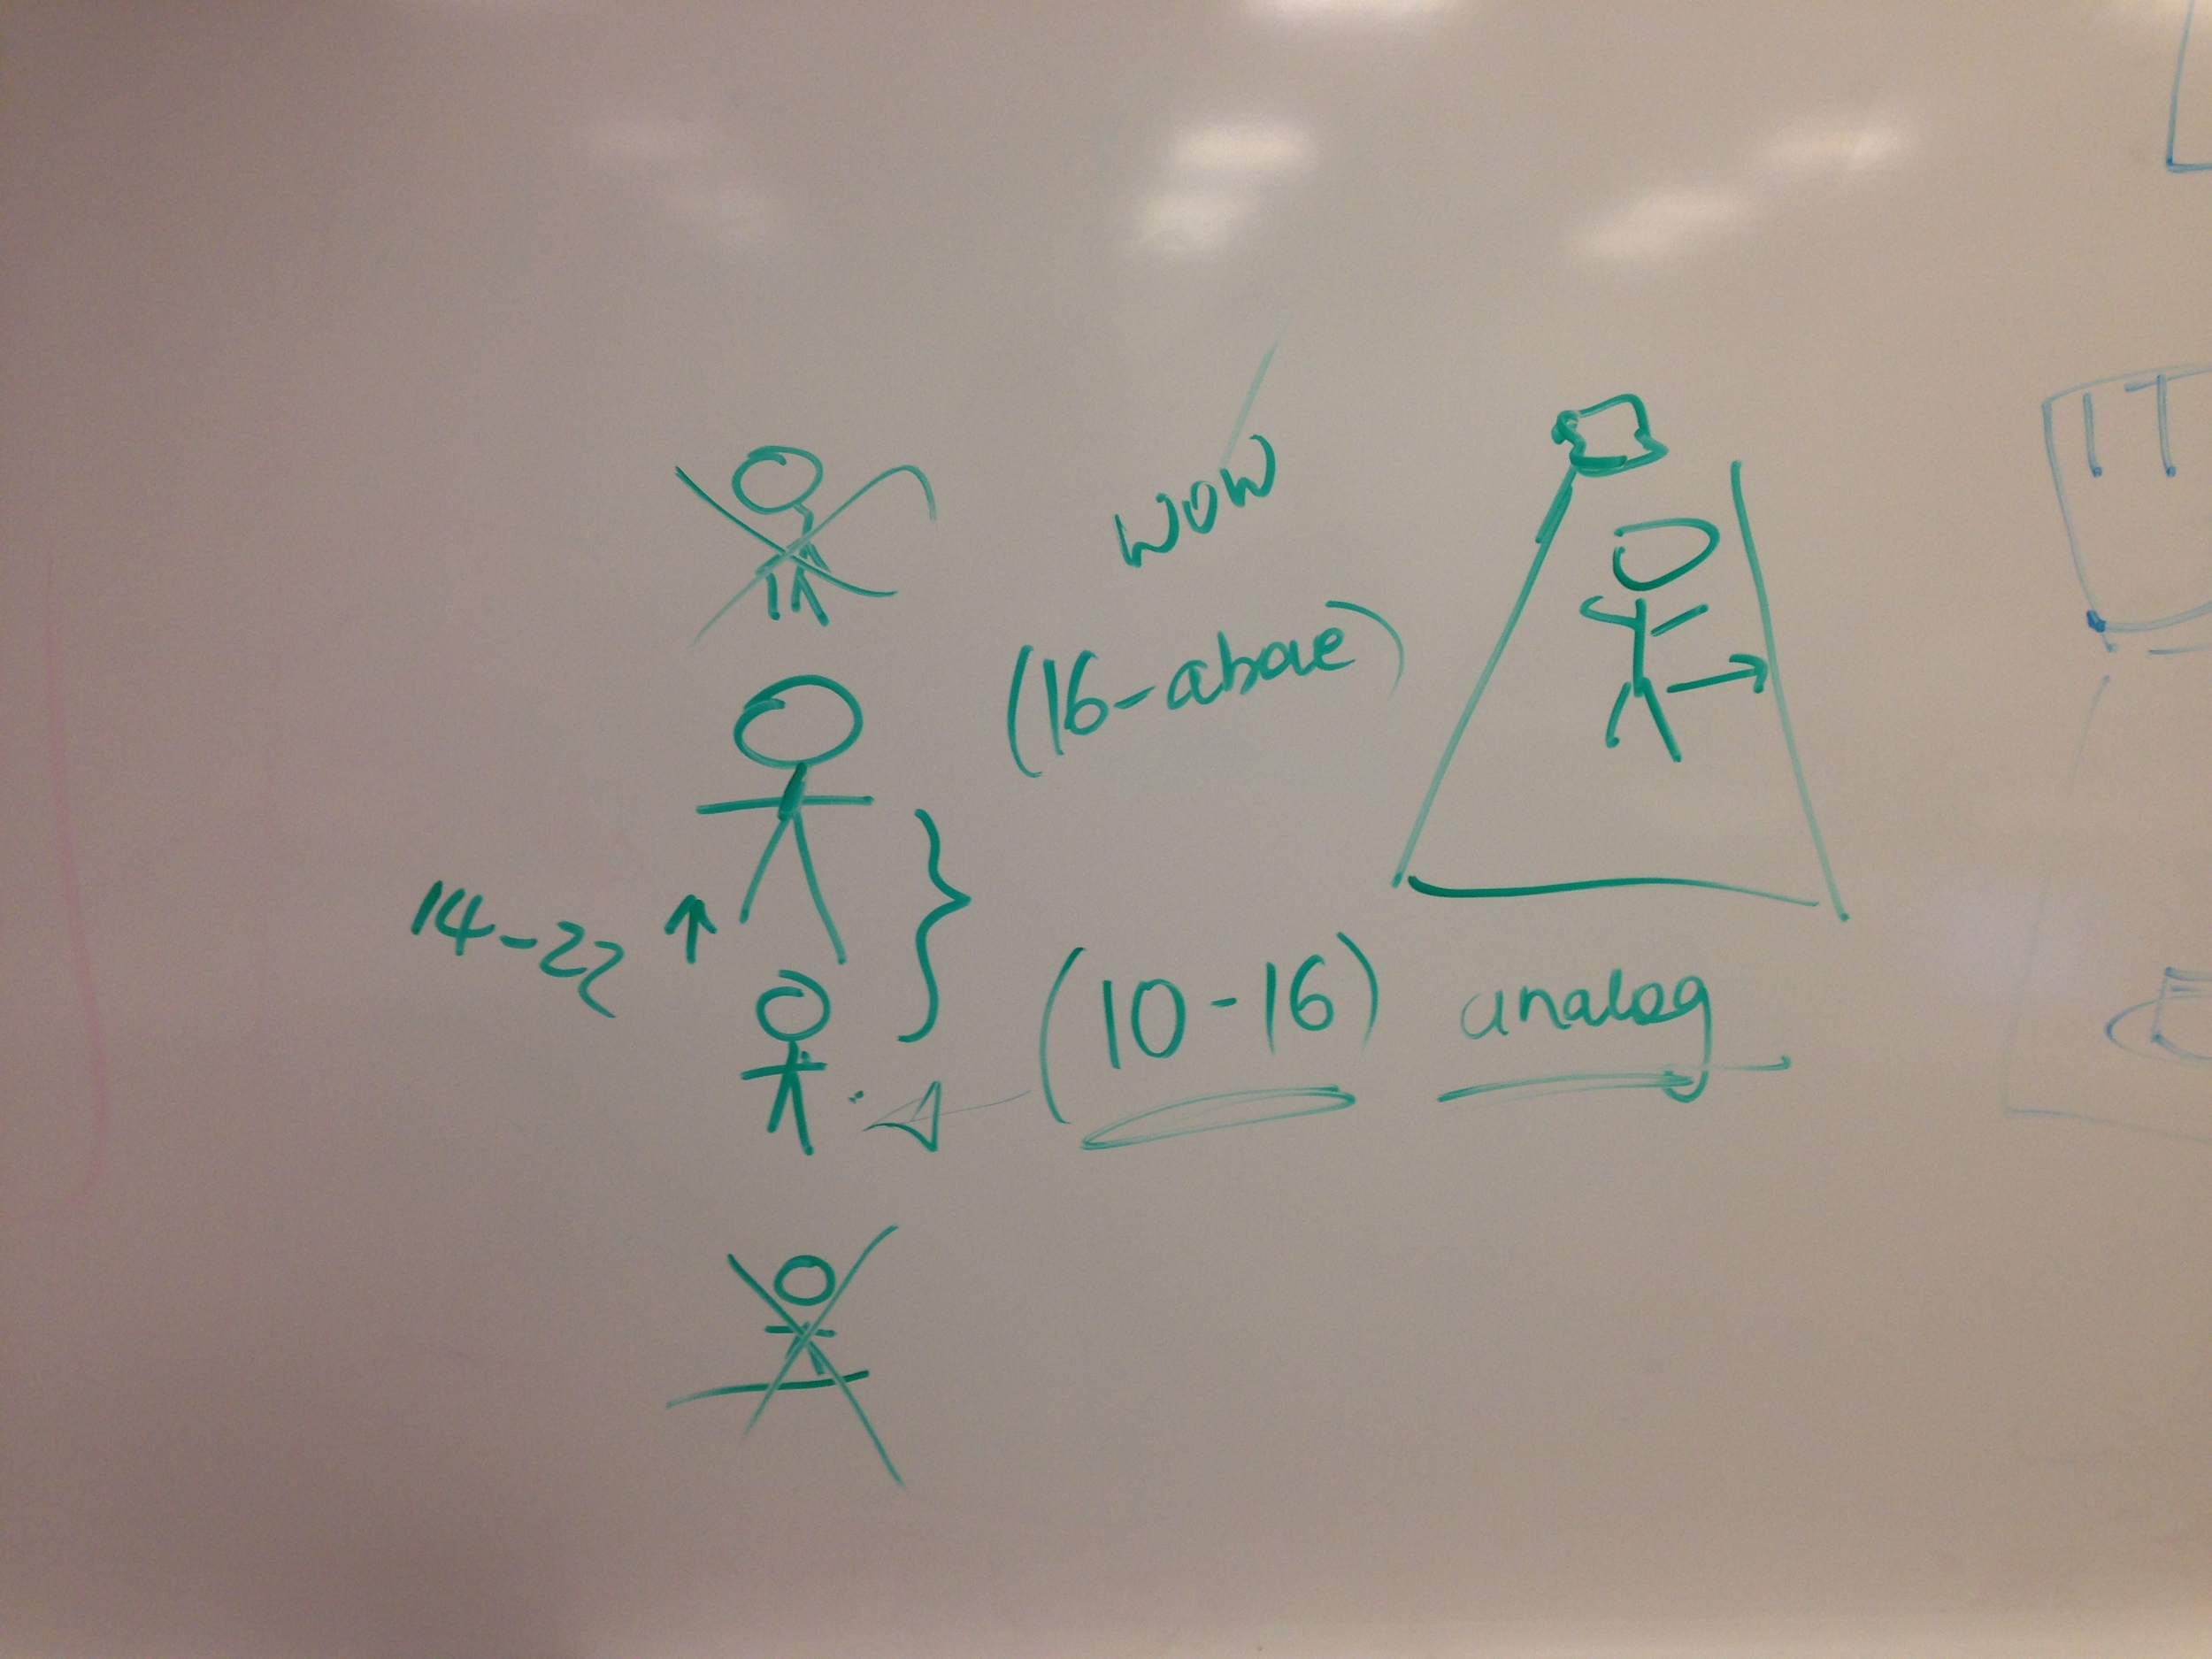 wow
(16-above)
14-22
(10-16) analog